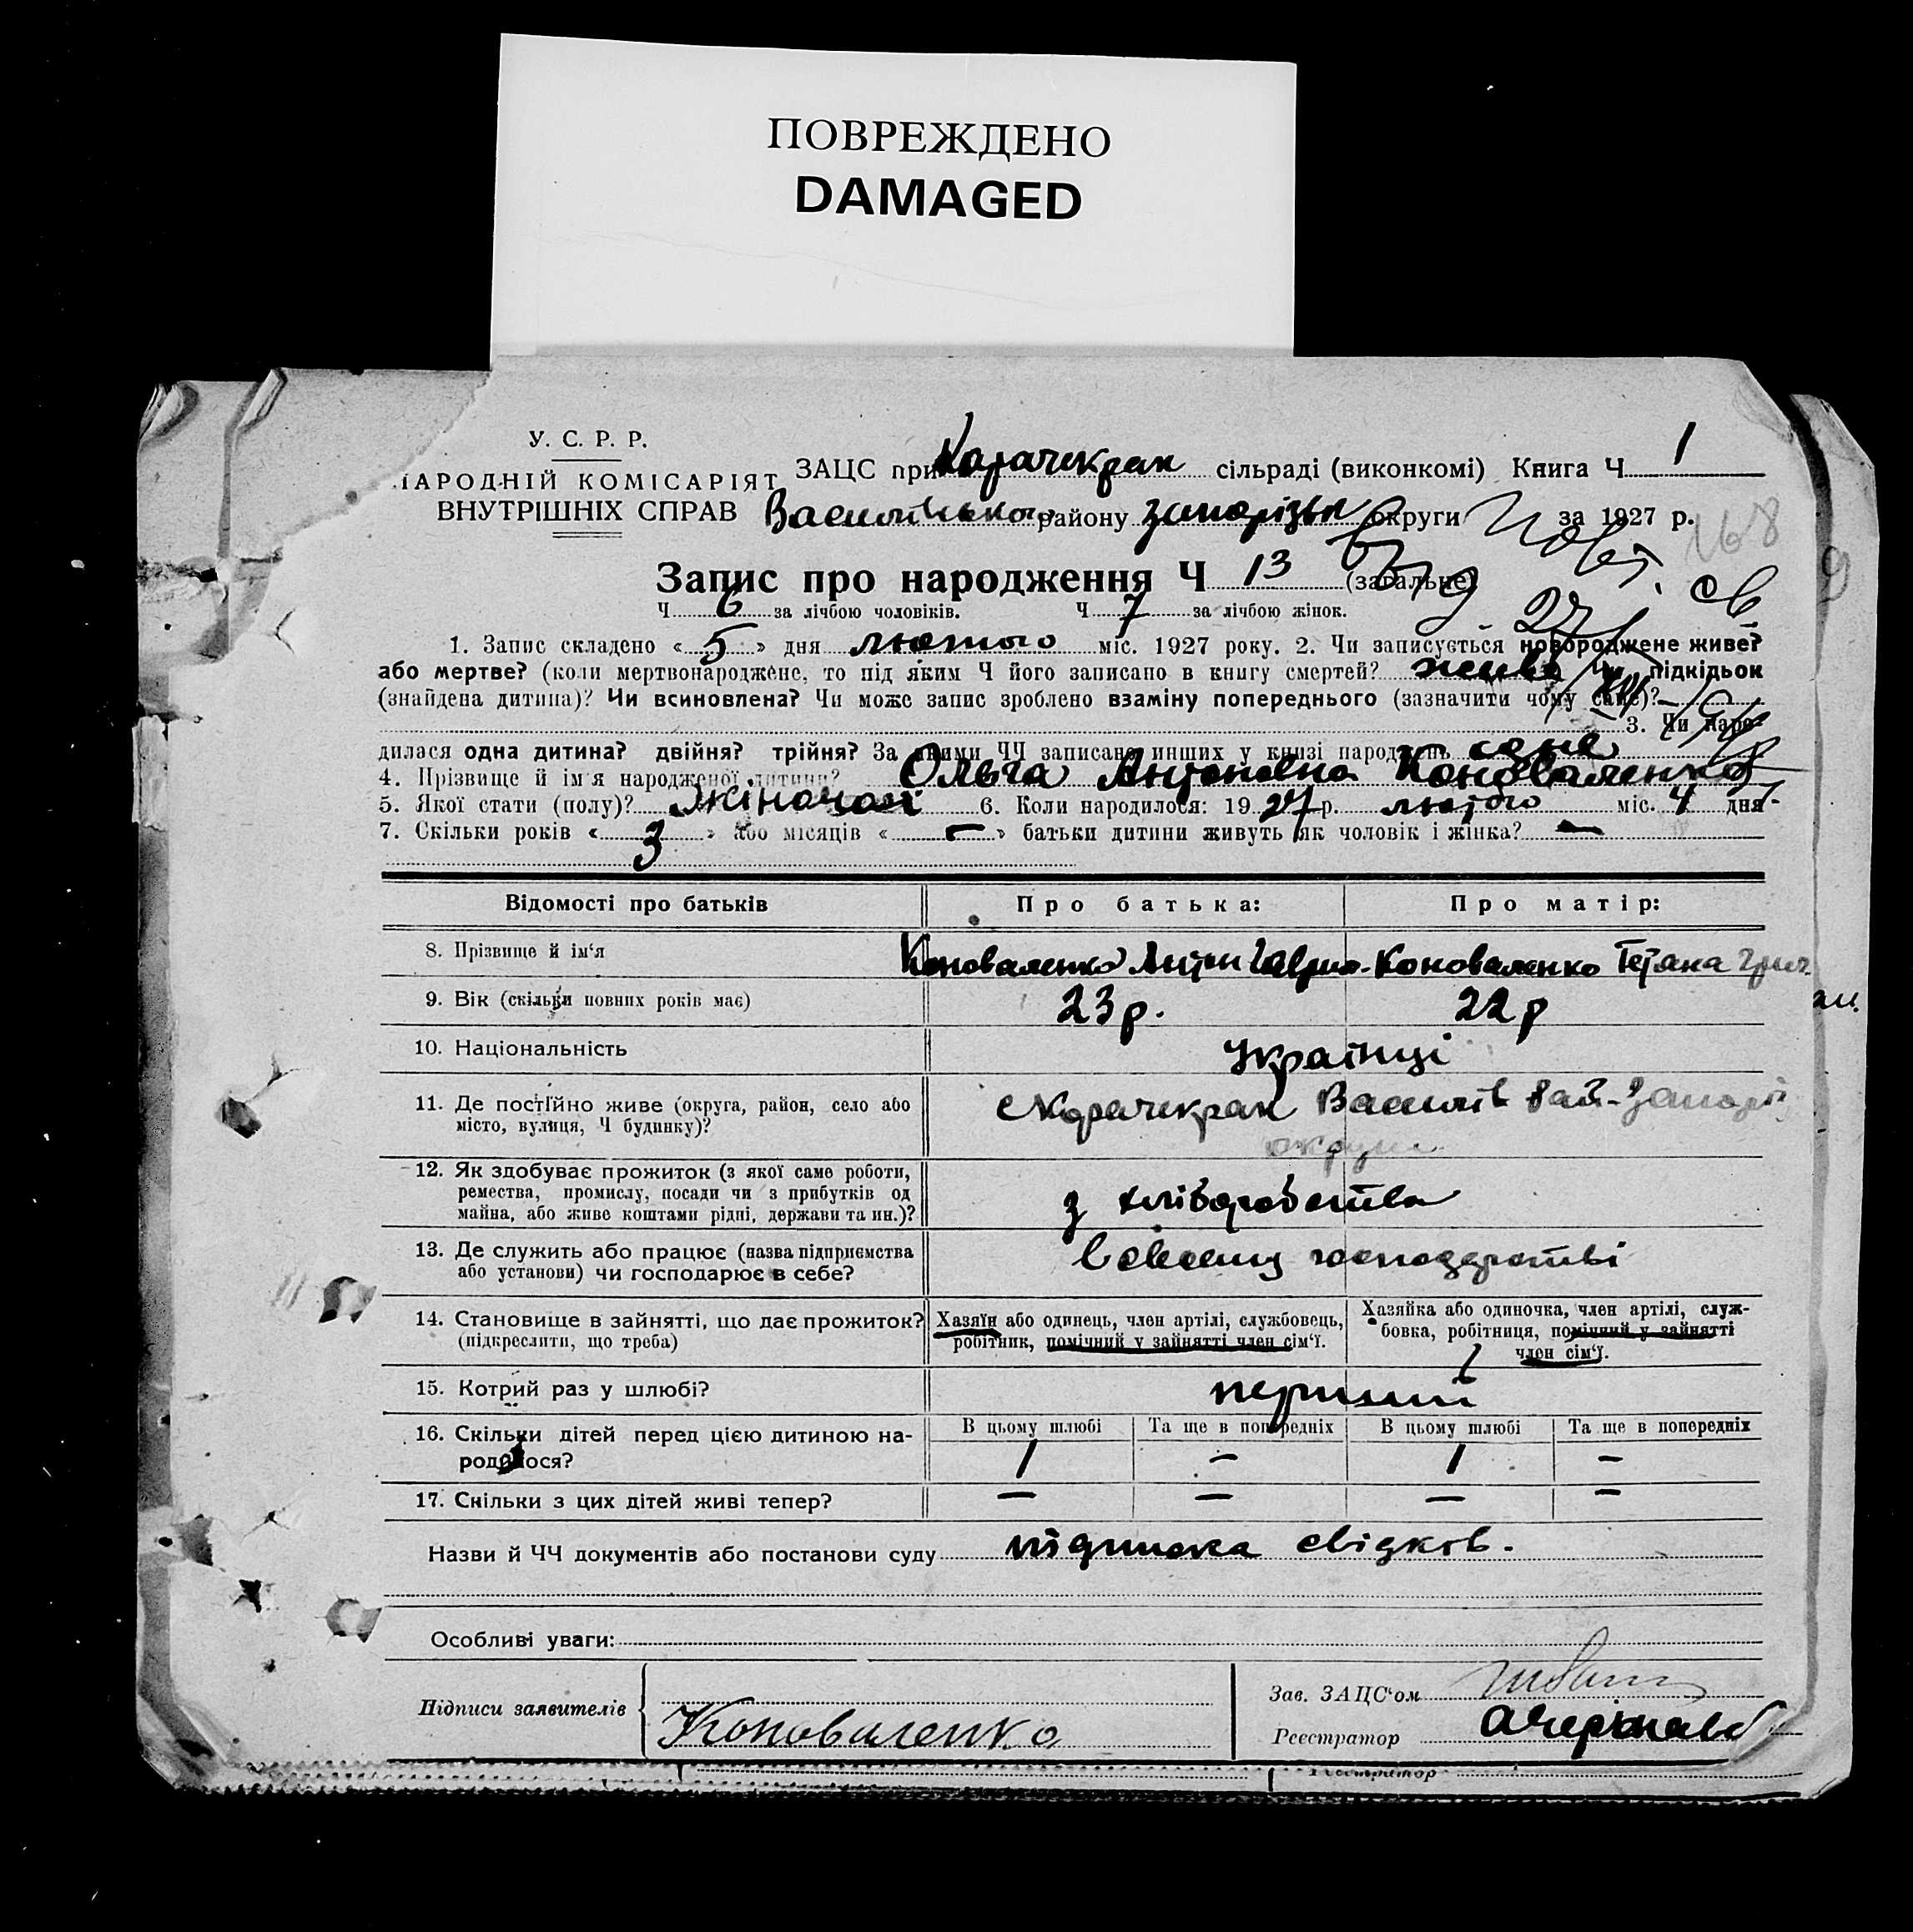 ПОВРЕЖДЕНО
DAMAGED
У. С. Р. Р.
НАРОДНІЙ КОМІСАРІЯТ
ВНУТРІШНІХ СПРАВ
ЗАЦС при Карачекрак сільраді (виконкомі) Книга Ч 1
району округи за 1927 р.
168
Запис про народження Ч 13 (загальне)
Ч 6 за лічбою чоловіків. Ч 7 за лічбою жінок.
1. Запис складено « 5 » дня лютого міс. 1927 року. 2. Чи записується новороджене живе?
або мертве? (коли мертвонароджене, то під яким Ч його записано в книгу смертей? живе Чи підкідьок
(знайдена дитина)? Чи всиновлена? Чи може запис зроблено взаміну попереднього (зазначити чому саме)?
3. Чи наро-
дилася одна дитина? двійня? трійня? За якими ЧЧ записано инших у книзі народжень одна
4. Прізвище й ім'я народженої дитини? Ольга Антоновна Коноваленко
5. Якої стати (полу)? жіночої 6. Коли народилося: 19 27 р. лютого міс. 4 дня
7. Скільки років « 3 » або місяців « — » батьки дитини живуть як чоловік і жінка? —
Відомості про батьків Про батька: Про матір:
8. Прізвище й ім'я Коноваленко Антон Гаврил. Коноваленко Тетяна Григ.
9. Вік (скільки повних років має) 23 р. 22 р
10. Національність Українці
11. Де постійно живе (округа, район, село або Карачекрак Василів рай. Запоріз
місто, вулиця, Ч будинку)? округи
12. Як здобуває прожиток (з якої саме роботи,
ремества, промислу, посади чи з прибутків од з хліборобства
майна, або живе коштами рідні, держави та ин.)?
13. Де служить або працює (назва підприємства в своєму господарстві
або установи) чи господарює в себе?
14. Становище в зайнятті, що дає прожиток? Хазяїн або одинець, член артілі, службовець, Хазяйка або одиночка, член артілі, служ-
(підкреслити, що треба) робітник, помічний у зайнятті член сім'ї. бовка, робітниця, помічний у зайнятті
член сім'ї.
15. Котрий раз у шлюбі? перший
16. Скільки дітей перед цією дитиною на- В цьому шлюбі Та ще в попередніх В цьому шлюбі Та ще в попередніх
родилося? 1 — 1 —
17. Скільки з цих дітей живі тепер? — — — —
Назви й ЧЧ документів або постанови суду підписка свідків.
Особливі уваги:
Підписи заявителів Коноваленко
Зав. ЗАЦС'ом
Реєстратор
Реєстратор